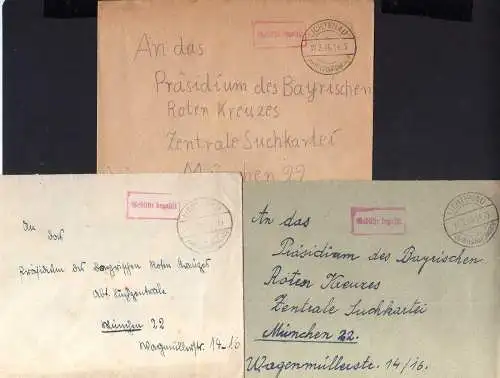 An das
Gebühr bezahlt
LICHTENAU
Präsidium des Bayrischen
Roten Kreuzes
Zentrale Suchkartei
München 22
Gebühr bezahlt
An das
Präsidium des Bayrischen Roten Kreuzes
Abt.
München 22
Wagmüllerstr. 14-16
Gebühr bezahlt
LICHTENAU
An das
Präsidium des Bayrischen
Roten Kreuzes
Zentrale Suchkartei
München 22.
Wagenmüllerstr. 14/16.